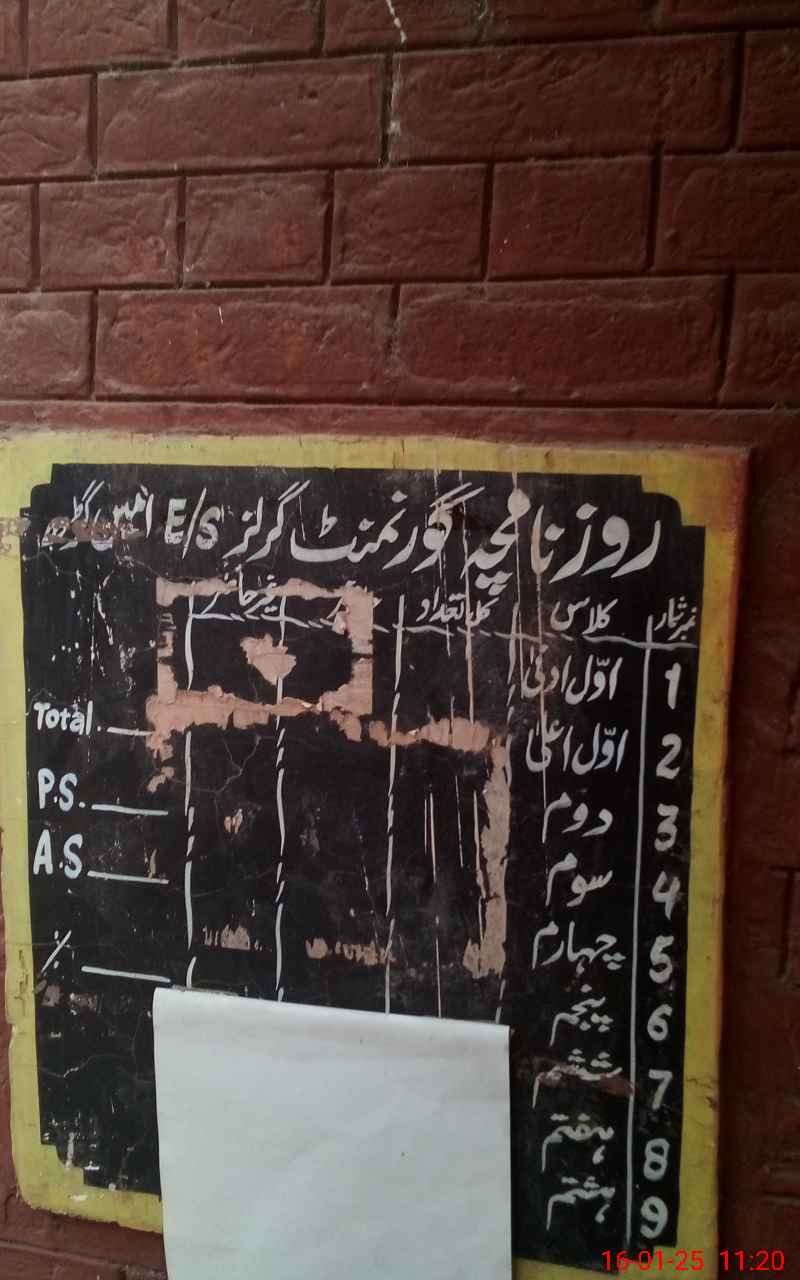 روزنامچہ گورنمنٹ گرلز E/S
نمبر شمار کلاس کل تعداد غیر حاضر
1 اوّل ادنیٰ
2 اوّل اعلیٰ
Total.
3 دوم
P.S.
4 سوم
A.S
5 چہارم
٪
6 پنجم
7 ششم
8 ہفتم
9 ہشتم
16-01-25 11:20